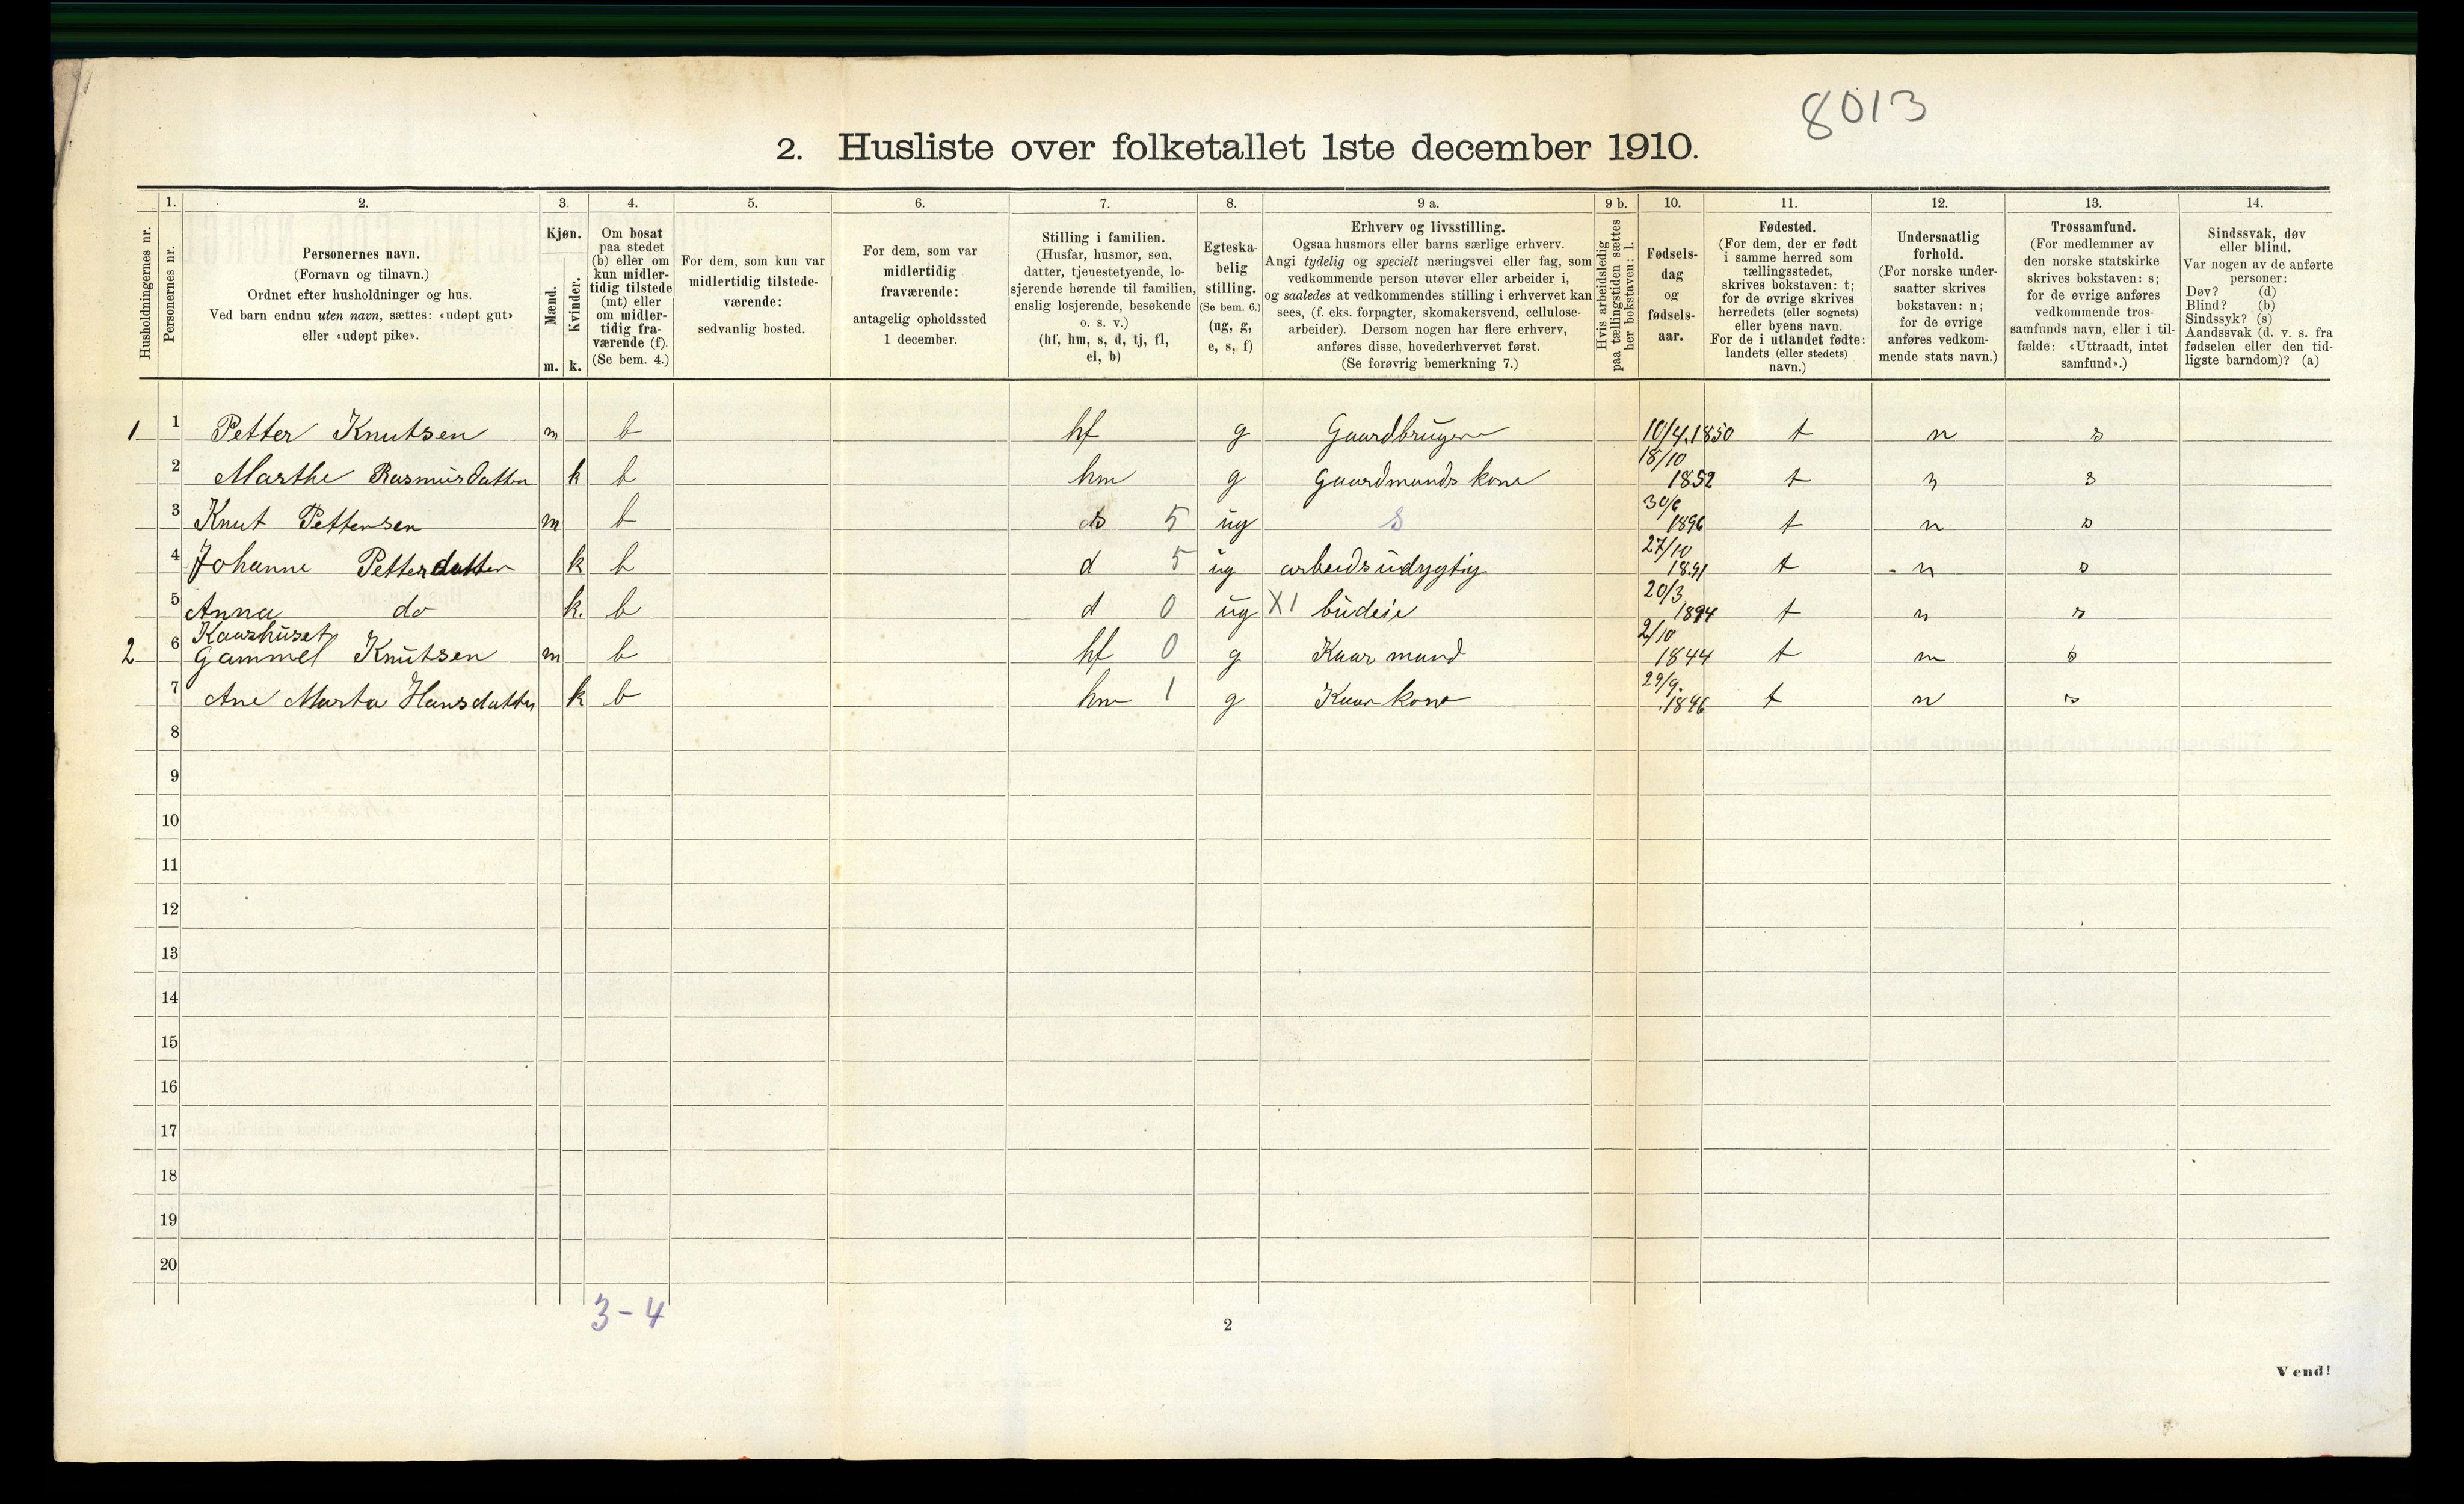 8013
2. Husliste over folketallet 1ste december 1910.
Husholdningernes nr.
1.
Personernes nr.
2.
Personernes navn.
(Fornavn og tilnavn.)
Ordnet efter husholdninger og hus.
Ved barn endnu uten navn, sættes: «udøpt gut»
eller «udøpt pike».
3.
Kjøn.
Mænd.
m.
Kvinder.
k.
4.
Om bosat
paa stedet
(b) eller om
kun midler-
tidig tilstede
(mt) eller
om midler-
tidig fra-
værende (f).
(Se bem. 4.)
5.
For dem, som kun var
midlertidig tilstede-
værende:
sedvanlig bosted.
6.
For dem, som var
midlertidig
fraværende:
antagelig opholdssted
1 december.
7.
Stilling i familien.
(Husfar, husmor, søn,
datter, tjenestetyende, lo-
sjerende hørende til familien,
enslig losjerende, besøkende
o. s. v.)
(hf, hm, s, d, tj, fl,
el, b)
8.
Egteska-
belig
stilling.
(Se bem. 6.)
(ug, g,
e, s, f)
9 a.
Erhverv og livsstilling.
Ogsaa husmors eller barns særlige erhverv.
Angi tydelig og specielt næringsvei eller fag, som
vedkommende person utøver eller arbeider i,
og saaledes at vedkommendes stilling i erhvervet kan
sees, (f. eks. forpagter, skomakersvend, cellulose-
arbeider). Dersom nogen har flere erhverv,
anføres disse, hovederhvervet først.
(Se forøvrig bemerkning 7.)
9 b.
Hvis arbeidsledig
paa tællingstiden sættes
her bokstaven: l.
10.
Fødsels-
dag
og
fødsels-
aar.
11.
Fødested.
(For dem, der er født
i samme herred som
tællingsstedet,
skrives bokstaven: t;
for de øvrige skrives
herredets (eller sognets)
eller byens navn.
For de i utlandet fødte:
landets (eller stedets)
navn.)
12.
Undersaatlig
forhold.
(For norske under-
saatter skrives
bokstaven: n;
for de øvrige
anføres vedkom-
mende stats navn.)
13.
Trossamfund.
(For medlemmer av
den norske statskirke
skrives bokstaven: s;
for de øvrige anføres
vedkommende tros-
samfunds navn, eller i til-
fælde: «Uttraadt, intet
samfund».)
14.
Sindssvak, døv
eller blind.
Var nogen av de anførte
personer:
Døv? (d)
Blind? (b)
Sindssyk? (s)
Aandssvak (d. v. s. fra
fødselen eller den tid-
ligste barndom)? (a)
1 1 Petter Knutsen m b hf g Gaardbruger 10/4.1850 t n s
2 Marthe Rasmusdatter k b hm g Gaardmands kone 18/10 1852 t n s
3 Knut Pettersen m b s 5 ug S 30/6 1896 t n s
4 Johanne Petterdatter k b d 5 ug arbeidsudygtig 27/10 1891 t n s
5 Anna do k. b d 0 ug X1 budeie 20/3 1894 t n s
Kaarhuset
2 6 Gammel Knutsen m b hf 0 g Kaarmand 2/10 1844 t n s
7 Ane Marta Hansdatter k b hm 1 g Kaarkone 29/9. 1846 t n s
8
9
10
11
12
13
14
15
16
17
18
19
20
3-4
2
Vend!